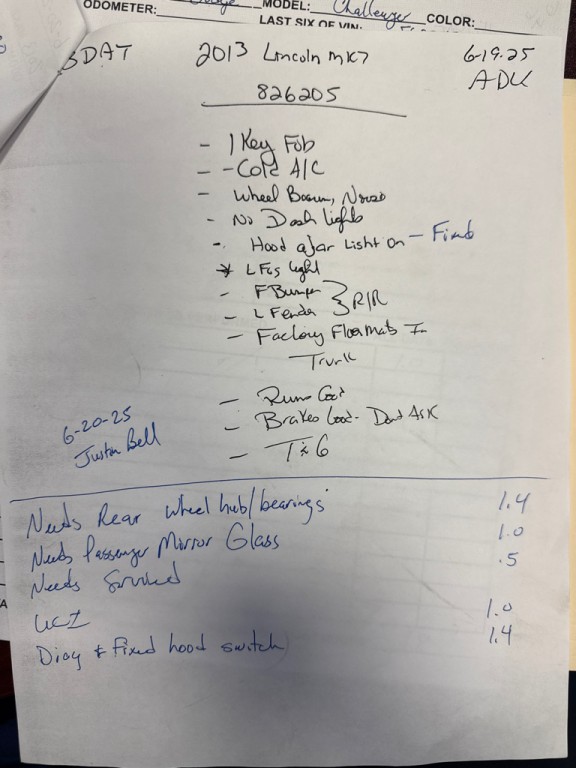 ODOMETER:
MODEL: Challenger
COLOR:
LAST SIX OF VIN:
3DAT 2013 Lincoln MKZ 6-19-25
ADK
826205
- 1 Key Fob
- - Cold A/C
- Wheel Bearing, Noise
- No Dash lights
- Hood ajar Light on - Fixed
* L Fog light
- F Bumper } R/R
- L Fender
- Factory Floormats In
Trunk
- Runs Good
- Brakes Good -
- T = 6
6-20-25
Justin Bell
Needs Rear wheel hub/bearings 1.4
Needs Passenger Mirror Glass 1.0
Needs Serviced .5
UCI 1.0
Diag & fixed hood switch 1.4